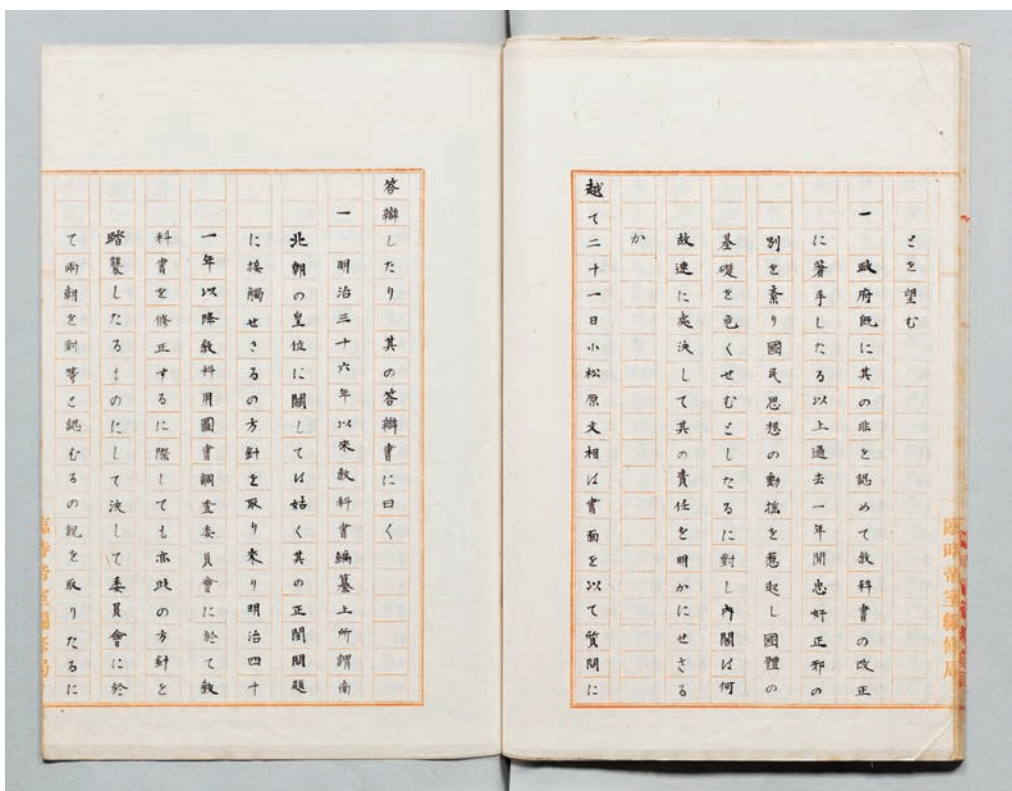 とを望む
一 政府既に其の非を認めて教科書の改正
に著手したる以上過去一年間忠奸正邪の
別を紊り國民思想の動搖を惹起し國體の
基礎を危くせむとしたるに對し內閣は何
故速に處決して其の責任を明かにせさる
か
越て二十一日小松原文相は書面を以て質問に
答辯したり 其の答辯書に曰く
一 明治三十六年以來敎科書編纂上所謂南
北朝の皇位に關しては姑く其の正閏問題
に接觸せさるの方針を取り來り明治四十
一年以降敎科用圖書調査委員會に於て敎
科書を修正するに際しても亦此の方針を
踏襲したるものにして決して委員會に於
て兩朝を對等と認むるの說を取りたるに
臨時帝室編修局
臨時帝室編修局